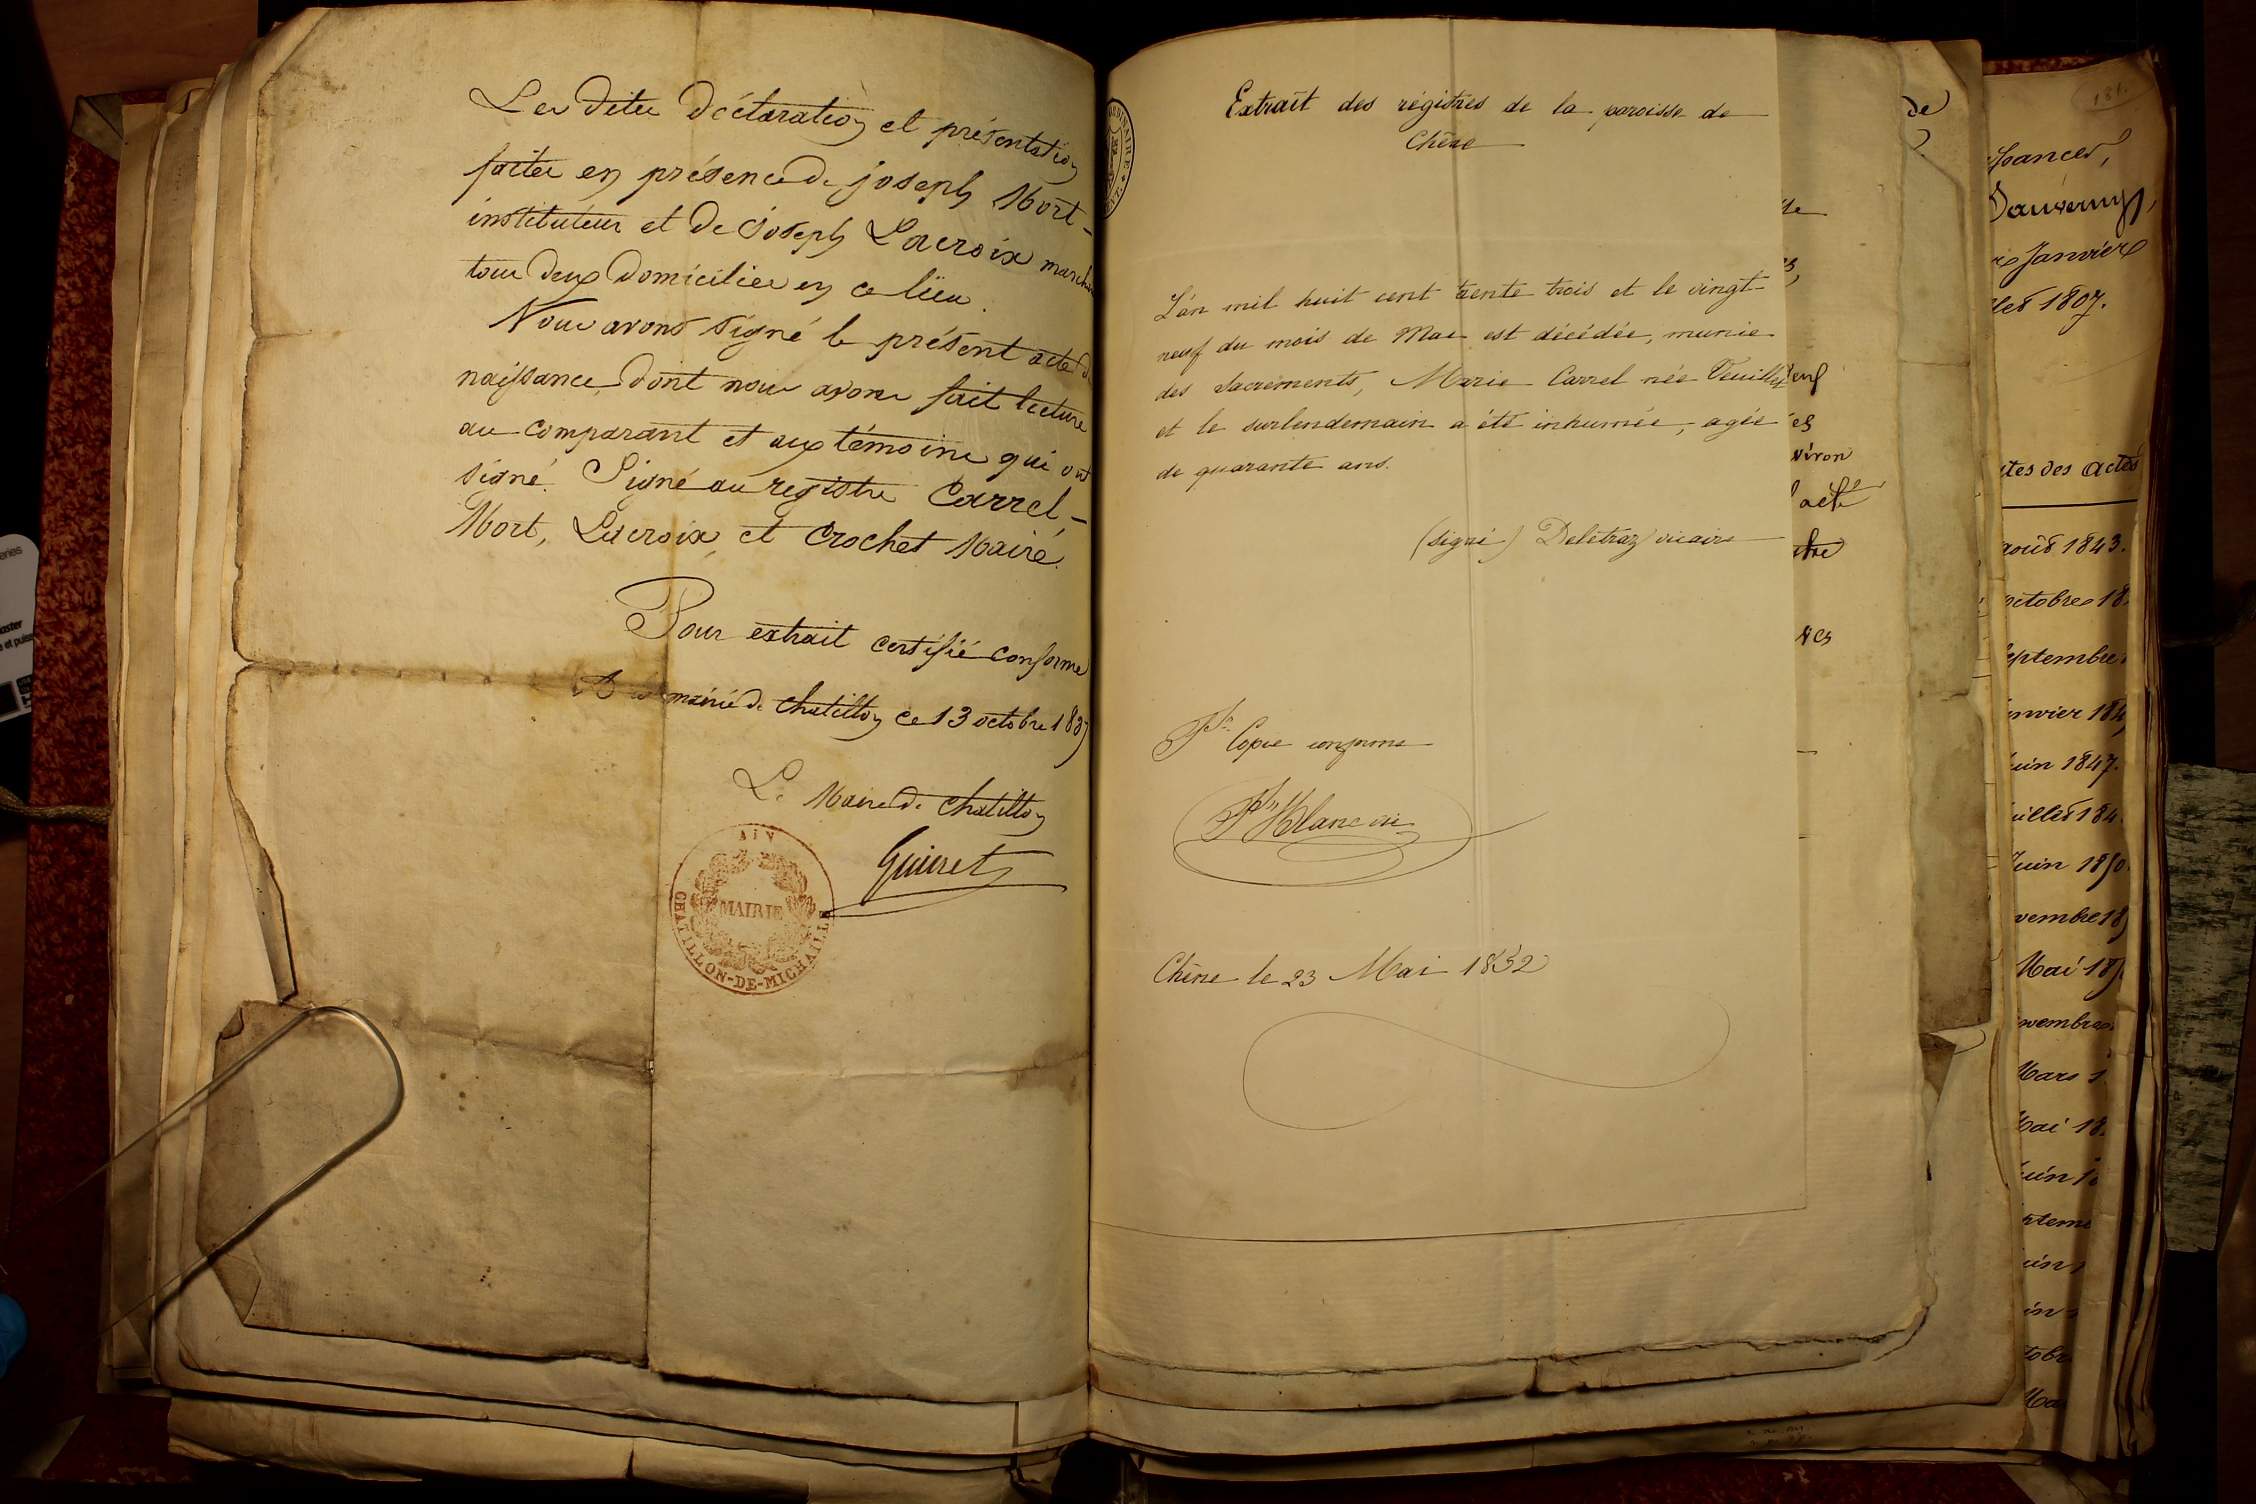 Les dites déclaration et présentation
faites en présence de joseph Mort -
instituteur et de joseph Lacroix marchand
tous deux domiciliés en ce lieu.
Nous avons signé le présent acte de
naissance, dont nous avons fait lecture
au comparant et aux témoins qui ont
signé. Signé au registre Carrel, -
Mort, Lacroix, et Crochet Maire.
Pour extrait certifié conforme
A la mairie de Chatillon ce 13 octobre 1837
Le Maire de Chatillon
Guinet
AIN
MAIRIE
CHATILLON-DE-MICHAILLE
Extrait des régistres de la paroisse de
Chêne
L'an mil huit cent trente trois et le vingt-
neuf du mois de Mai est décédée, munie
des Sacrements, Marie Carrel née Veuillet
et le surlendemain a été inhumée, agée
de quarante ans.
(signé) Delétraz vicaire
Pr. Copie conforme
Chêne le 23 Mai 1852
de
enf
es
viron
acte
181.
ssances,
Sauverny,
Janvier
1807.
tes des actes
août 1843.
octobre 18
septembre
anvier 184
uin 1847.
uillet 184
Juin 1850.
vembre 18
Mai 18
vembre
Mars 1
Mai 18
uin 1
ptem
uin
in
tobr
Ma